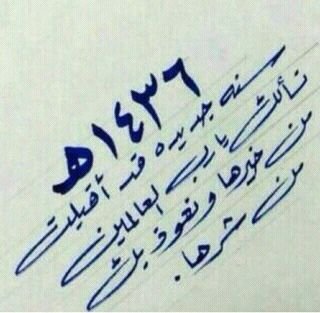 ١٤٣٦هـ
سنه جديده قد أقبلت
نسألك يارب العالمين
من خيرها ونعوذ بك
من شرها.